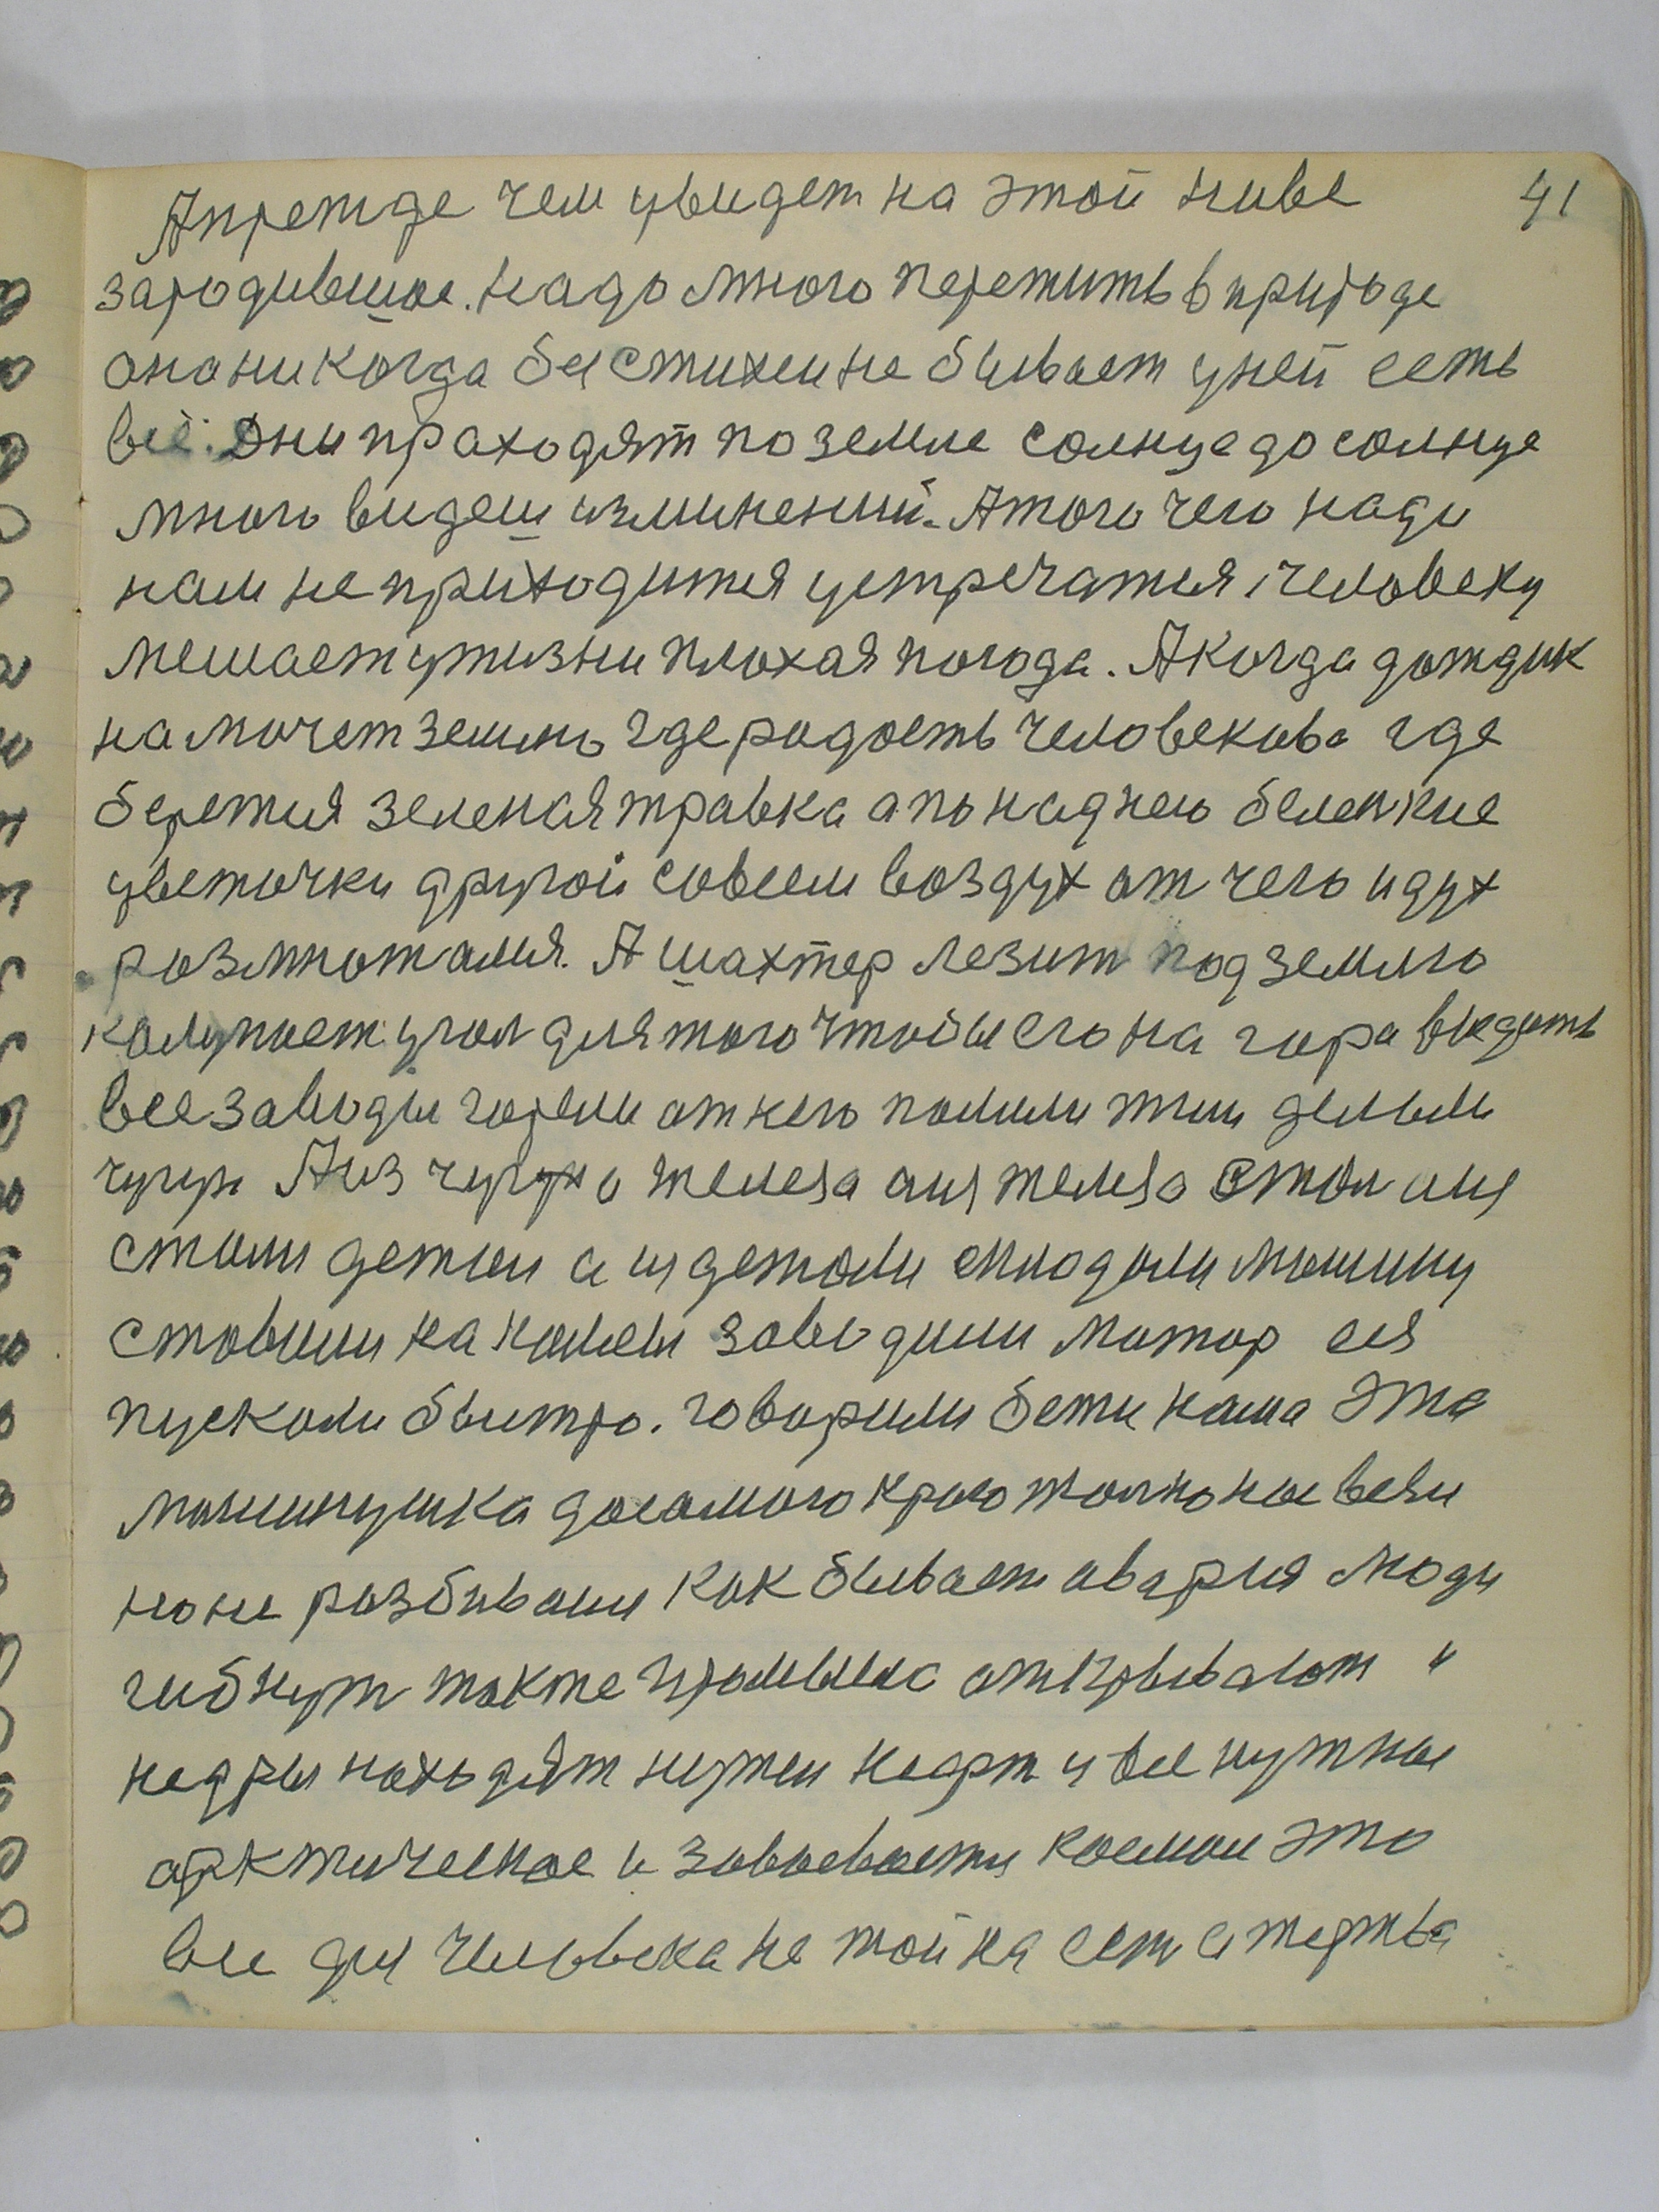 41
А прежде чем увидет на этой ниве
зародившое. Надо много пережить в природе
она никогда без стихеи не бывает у ней есть
всё. Дни праходят по земле солнце до солнце
много видеш изминений. А того чего надо
нам не приходится устречатся, человеку
мешает у жизни плохая погода. А когда дождик
намочет землю где радость человекова где
бережтся зеленая травка а по надней беленкие
цветочки другой совсем воздух от чего идух
розмножался. А шахтер лезит под землю
колупает угол для того чтобы его на гора выдать
все заводы горели от него помили жги делали
чугун А из чугуна железа а из железа стал а из
стали детали а из детали складали машину
ставили на колеса заводили матор ея
пускали быстро. говорили бежи наша эта
машинушка досамого краю только не вези
но не разбивали как бывает авария люди
гибнут также промысла открывают и
недры находят нужен нефт и все нужное
арктическое и завоевают космос это
все для человека не тайна есть а жертва